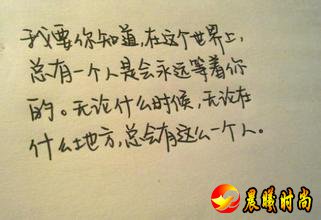 我要你知道,在这个世界上,
总有一个人是会永远等着你
的。无论什么时候,无论在
什么地方,总会有这么一个人。
晨曦时尚